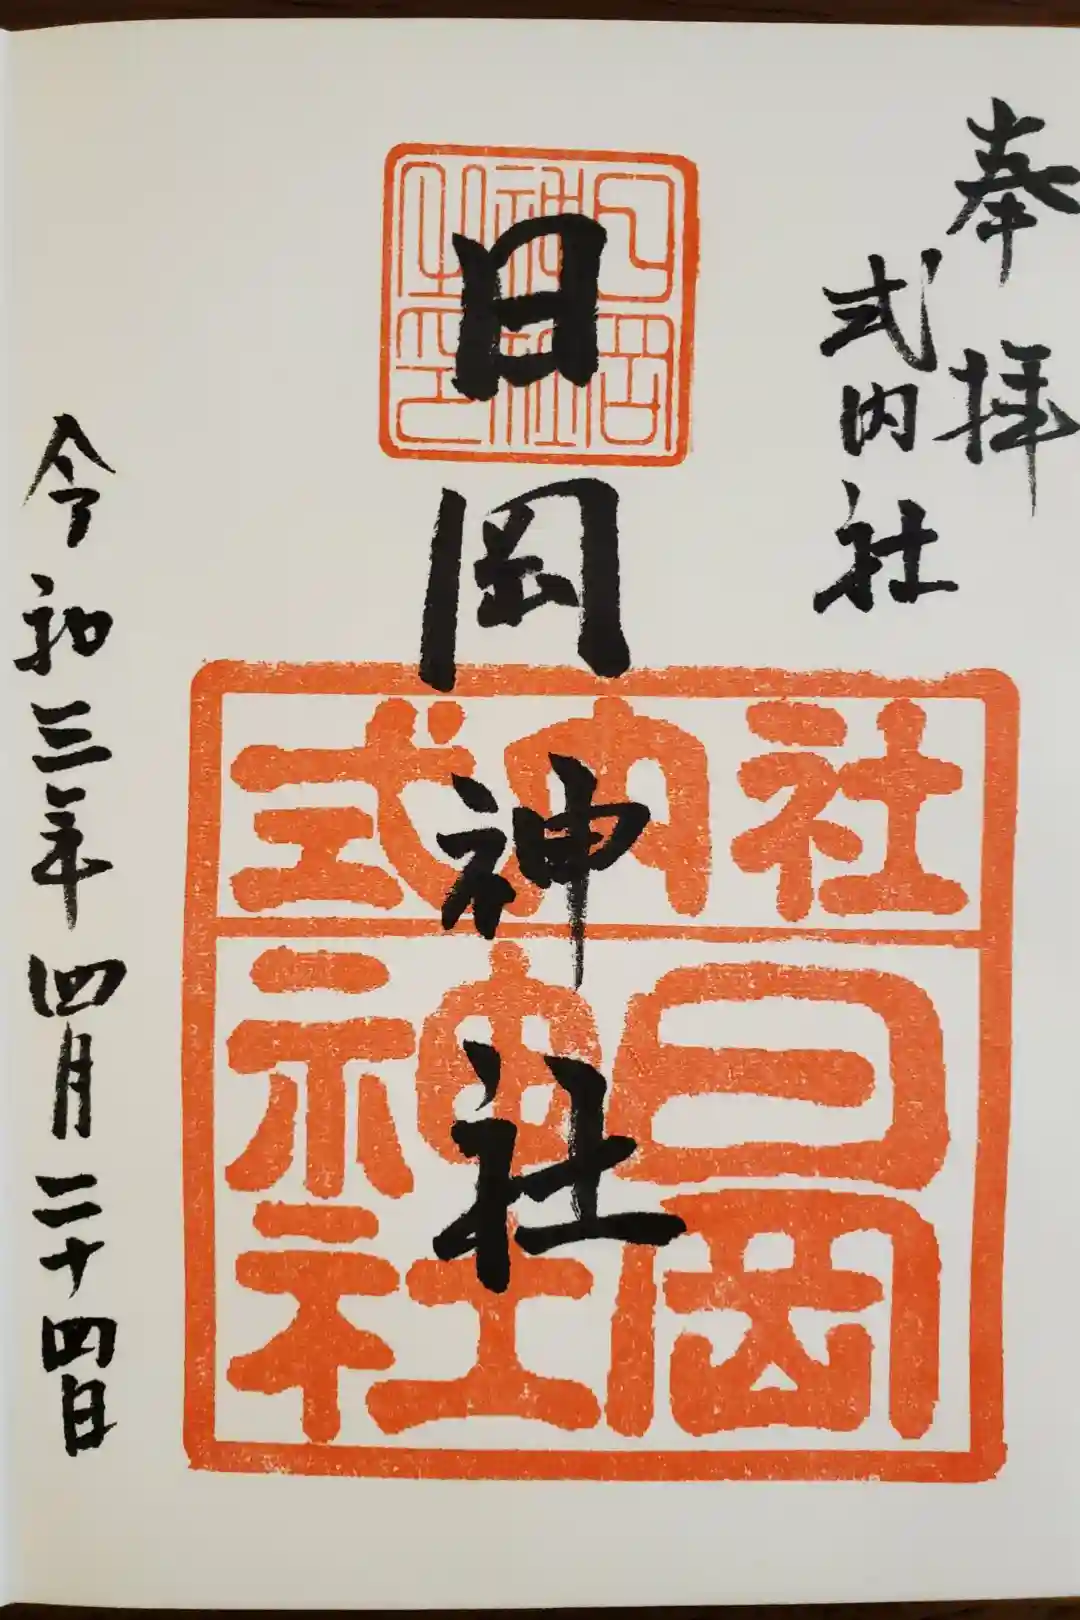 奉拝
式内社
日岡神社
令和三年四月二十四日
日岡
神社
之印
式内社
日岡
神社